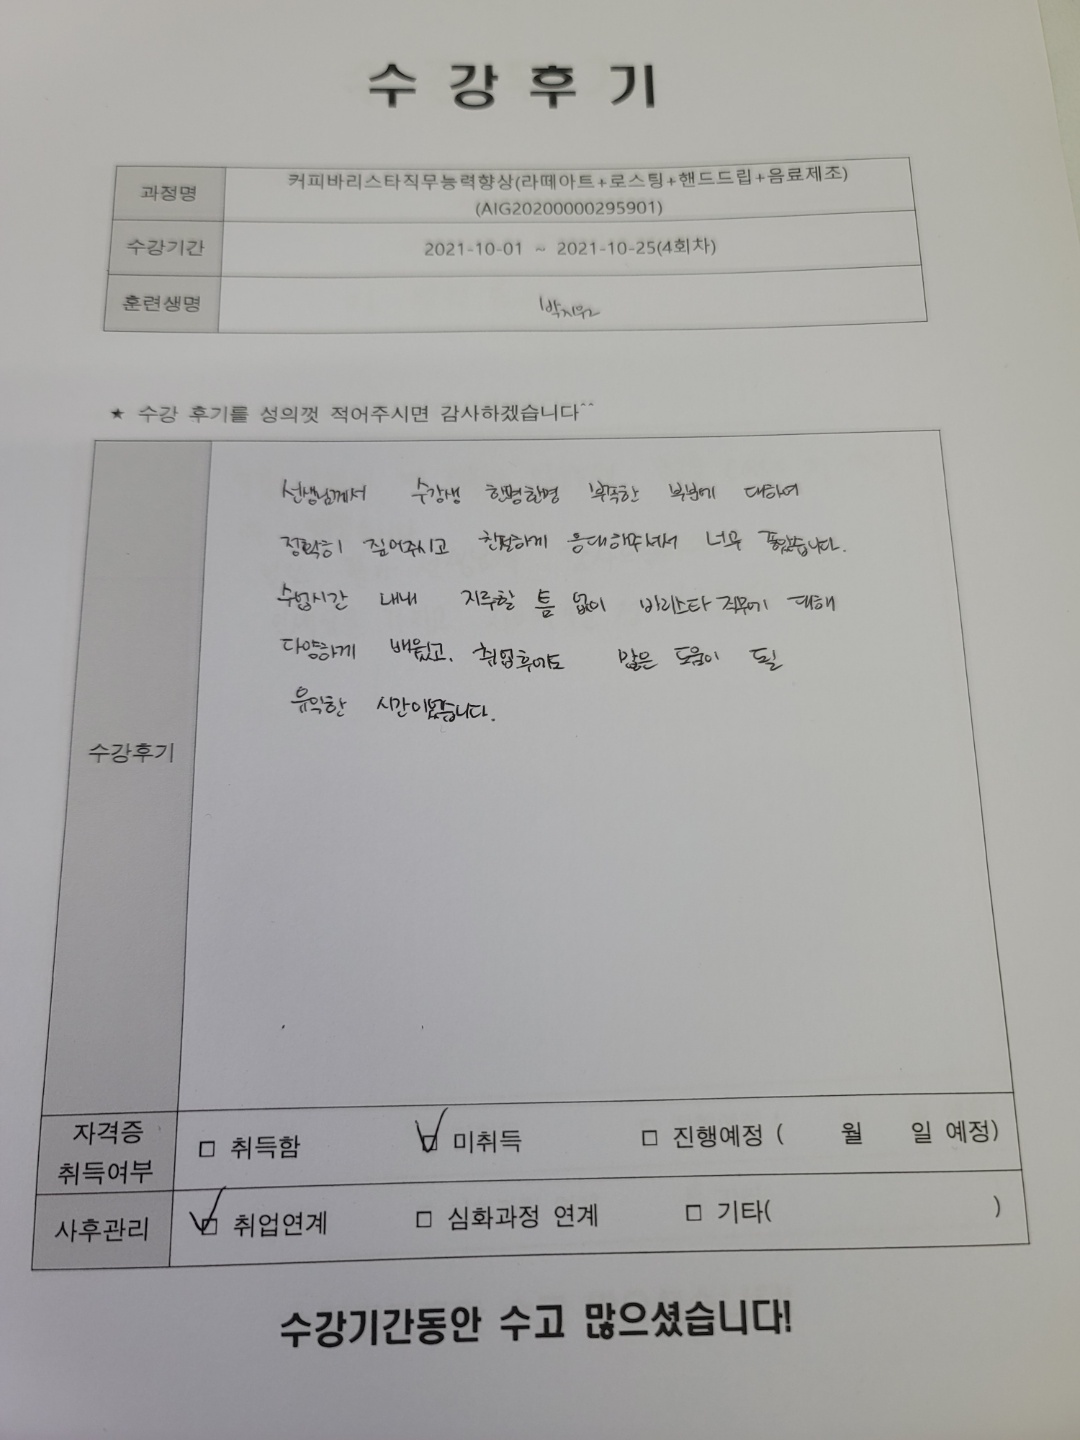 수 강 후 기
과정명
커피바리스타직무능력향상(라떼아트+로스팅+핸드드립+음료제조)
(AIG20200000295901)
수강기간
2021-10-01 ~ 2021-10-25(4회차)
훈련생명
박지원
★ 수강 후기를 성의껏 적어주시면 감사하겠습니다^^
수강후기
선생님께서 수강생 한명한명 부족한 부분에 대하여
정확히 짚어주시고 친절하게 응대해주셔서 너무 좋았습니다.
수업시간 내내 지루할 틈 없이 바리스타 직무에 대해
다양하게 배웠고, 취업후에도 많은 도움이 될
유익한 시간이었습니다.
자격증
취득여부
□ 취득함 ☑ 미취득 □ 진행예정 ( 월 일 예정)
사후관리
☑ 취업연계 □ 심화과정 연계 □ 기타( )
수강기간동안 수고 많으셨습니다!